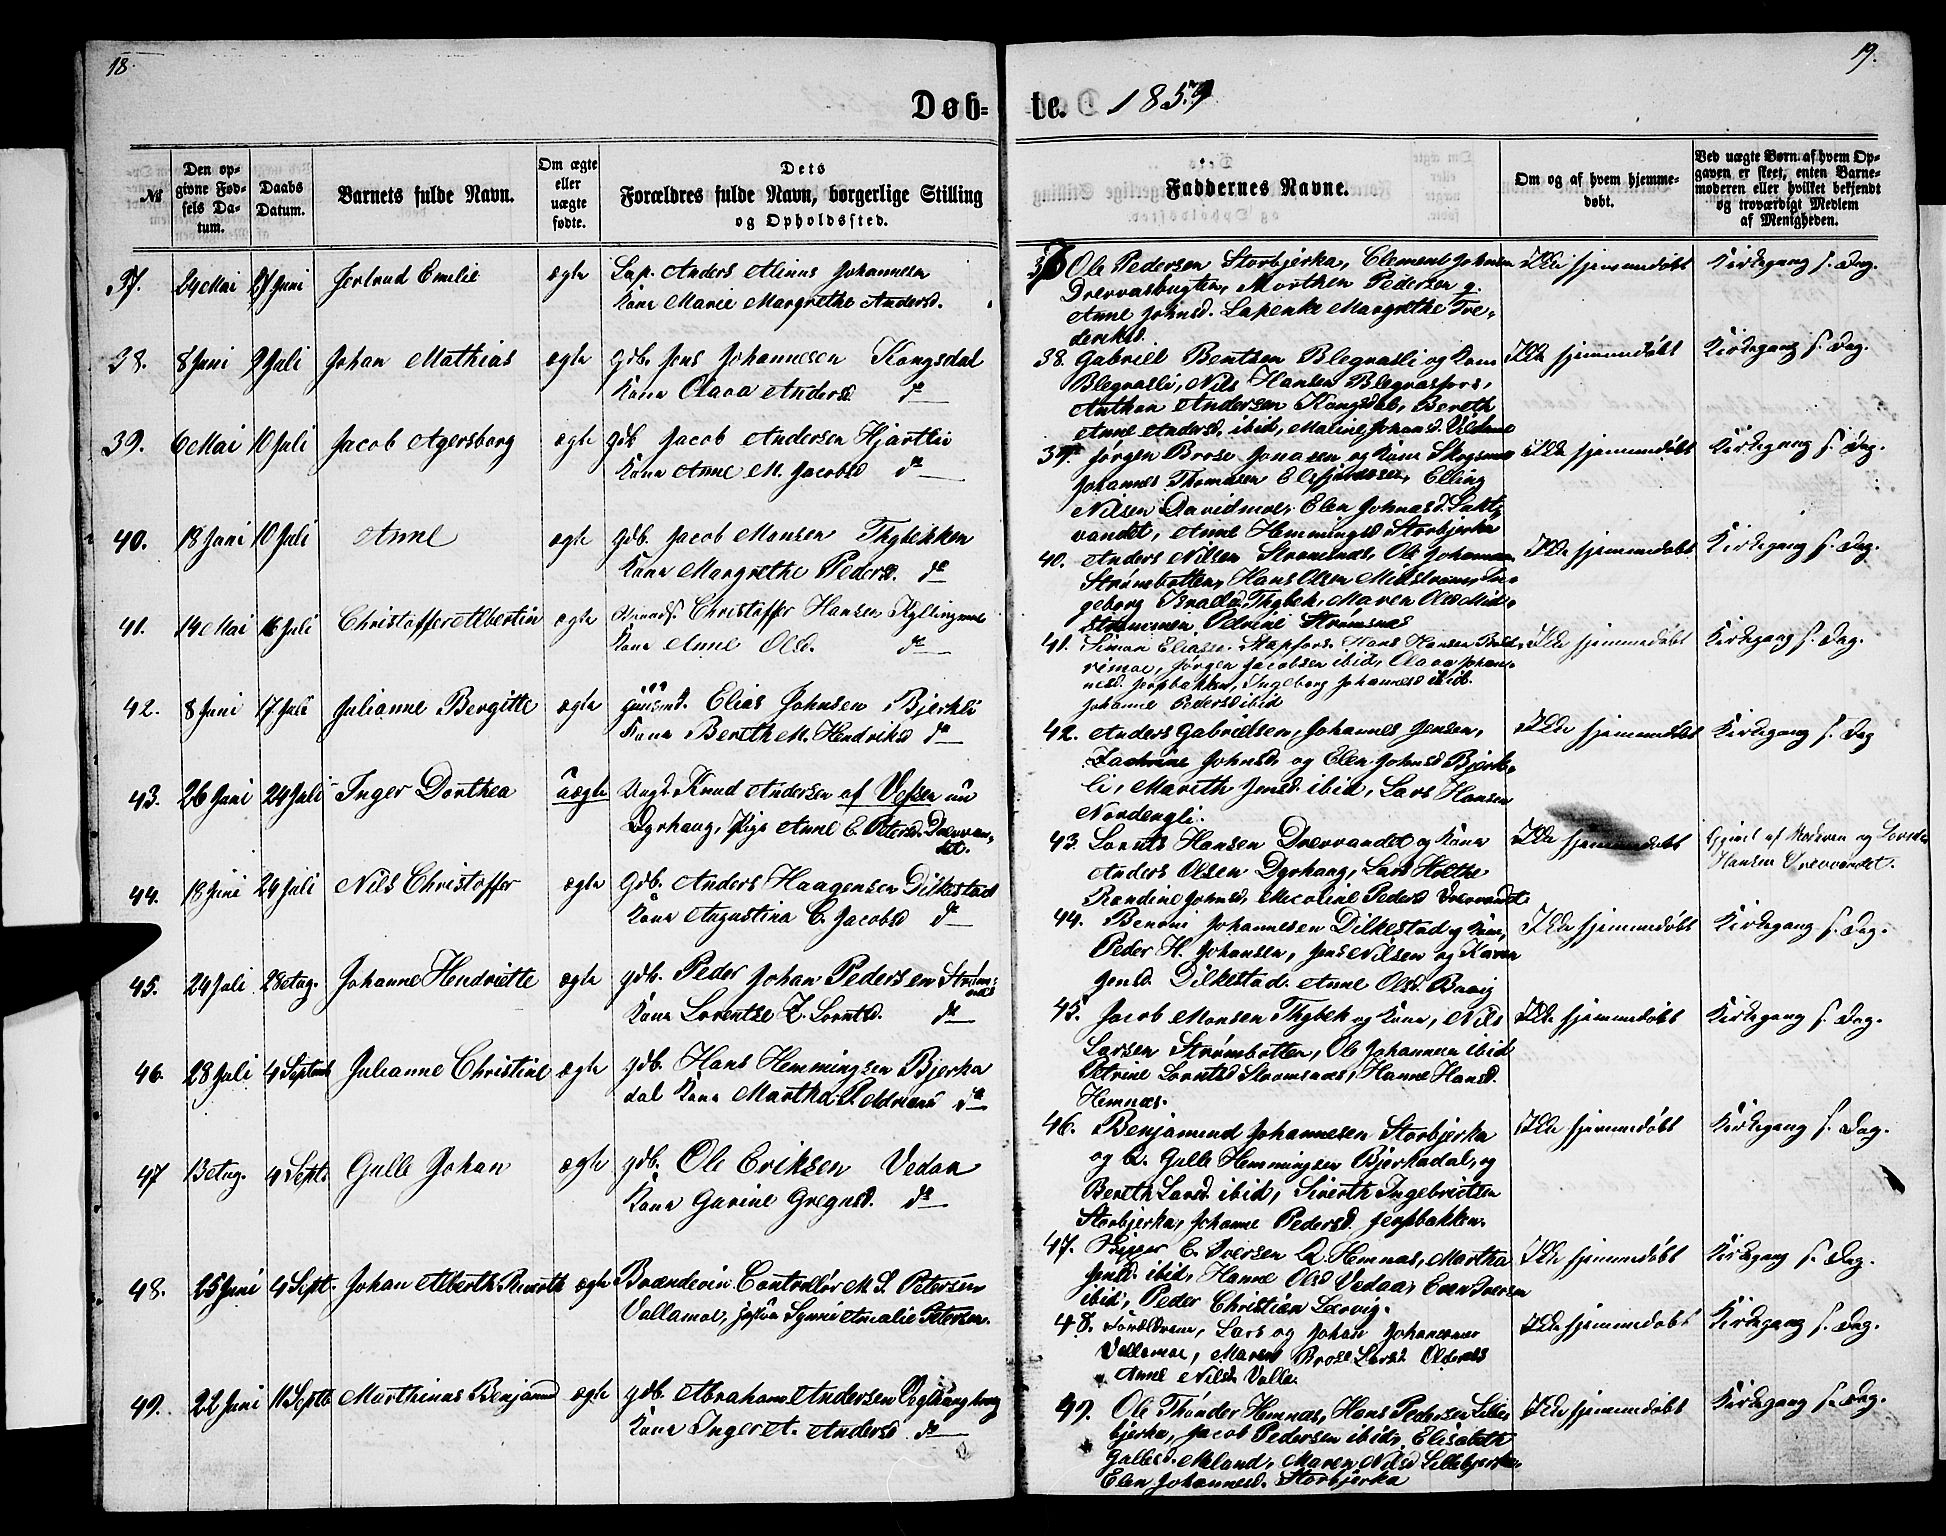 18.
19.
Døb-
te. 1859
№
Den op-
givne Fød-
sels Da-
tum.
Daabs
Datum.
Barnets fulde Navn.
Om ægte
eller
uægte
fødte.
Dets
Forældres fulde Navn, borgerlige Stilling
og Opholdssted.
Faddernes Navne.
Om og af hvem hjemme-
døbt.
Ved uægte Børn af hvem Op-
gaven er skeet, enten Barne-
moderen eller hvilket bekjendt
og troværdigt Medlem
af Menigheden.
37. 24 Mai 27 Juni Jertrud Emelie ægte Lap. Anders Johannesen
Kone Marie Margrethe Andersd.
37 Ole Pedersen Storbjerka, Clement Johnsen
Drevvasbugten, Morthen Pedersen g.
Anne Johnsd. Lapenke Margrethe Fre-
deriksd.
Ikke hjemmedøbt Kirkegang s. Dag.
38. 8 Juni 9 Juli Johan Mathias ægte gdb. Jens Johannesen Kongsdal
Kone Clara Andersd do
38. Gabriel Bentsen Blegvasli og Kone
Blegvasli, Nils Hansen Blegvasfors,
Anthon Andersen Kongsdal, Bereth
Anne Andersd. ibid, Maline Johansd.
Ikke hjemmedøbt Kirkegang s. Dag.
39. 6 Mai 10 Juli Jacob Agersborg ægte gdb Jacob Andersen Hjartlie
Kone Anne M. Jacobsd do
39. Jørgen Brose Jonasen og Kone Skogsmoe
Johannes Thomasen Elsfjordosen, Elling
Nilsen Davidmoe, Elen Johnsd.
vandet, Anne Hemmingsd Storbjerka
Ikke hjemmedøbt Kirkegang s. Dag.
40. 18 Juni 10 Juli Anne ægte gdb. Jacob Monsen Thybekken
Kone Margrethe Pedersd. do
40. Anders Nilsen Strømsnæs, Ole Johannesen
Strømbotten, Hans Olsen Midstrømen, In-
geborg Thybek, Maren Olsd Mid-
strømmen, Petrine Strømsnæs
Ikke hjemmedøbt Kirkegang s. Dag.
41. 14 Mai 16 Juli Christoffer Albertin ægte Christoffer Hansen Kyllingmoe
Kone Anne Olsd. do
41. Simon Eliasse. Stapfors. Hans Hansen
rimoe, Jørgen Jacobsen ibid, Claaa Johan-
nesd. Jerpbakken, Ingeborg Johannesd ibid.
Johanne Pedersd ibid
Ikke hjemmedøbt Kirkegang s. Dag.
42. 8 Juni 17 Juli Julianne Bergitte ægte Huusmd. Elias Johnsen Bjerkli
Kone Bereth M. Hendriksd do
42. Anders Gabrielsen, Johannes Jensen,
Zachrine Johnsd. og Elen Johnsd Bjerk-
li, Mareth Jensd. ibid, Lars Hansen
Nordengli.
Ikke hjemmedøbt Kirkegang s. Dag
43. 26 Juni 24 Juli Inger Dorthea uægte Ungk. Knud Andersen af Vefsen nu
Dyrhaug, Pige Anne E. Petersd. Drevvan-
det.
43. Lornts Hansen Drevvandet og Kone
Anders Olsen Dyrhaug, Lars Holthe
Randine Johnsd, Nicoline Pedersd Drevvandet
Ikke hjemmedøbt Opgivet af Moderen og Lornts
Hansen Drevvandet.
44. 18 Juni 24 Juli Nils Christoffer ægte Gdb. Anders Haagensen Dilkestad
Kone Augustina C. Jacobsd do
44. Benoni Johannesen Dilkestad og Kone,
Peder H. Johansen, Jens Nilsen og Karen
Jensd. Dilkestad. Anne Olsd. Bovig
Ikke hjemmedøbt Kirkegang s. Dag.
45. 24 Juli 28 Aug. Johanne Hendriette ægte gdb. Peder Johan Pedersen Strøms-
næs
Kone Lorentse Z. Lorntsd. do
45. Jacob Monsen Thybek og Kone, Nils
Larsen Strømbotten, Ole Johannesen ibid
Petrine Lorntsd Strømsnæs, Hanne Hansd.
Hemnæs.
Ikke hjemmedøbt Kirkegang s. Dag.
46. 28 Juli 4 Septemb Julianne Christine ægte gdb. Hans Hemmingsen Bjerka
dal Kone Martha P. do
46. Benjamind Johannesen Storbjerka
og Q. Galle Hemmingsen Bjerkadal, og
Bereth Larsd. ibid, Siverth Ingebrictsen
Storbjerka, Johanne Pedersd. Jerpbakken.
Ikke hjemmedøbt Kirkegang s. Dag.
47 13 Aug. 4 Septb. Galle Johan ægte gdb. Ole Eriksen Vedaa
Kone Gurine Gregusd. do
47. E. Iversen Q. Hemnæs, Martha
Jensd. ibid, Hanne Olsd Vedaa, Even Iversen
ibid, Peder Christian Lervig.
Ikke hjemmedøbt Kirkegang s. Dag.
48. 25 Juni 4 Sept. Johan Alberth ægte Brændevin Controllør M. S. Petersen
Vallamoe, Hustru Synni Amalie Petersen.
48. Forældrene, Lars og Johan Johannesen
Vallamoe, Maren Brose Larsd Olderæs
Anne Nilsd. Valle.
Ikke hjemmedøbt Kirkegang s. Dag.
49. 22 Juni 11 Septb Marthinus Benjamin ægte gdb. Abraham Andersen
Kone Inger A. Andersd. do
49. Ole Thonder Hemnæs, Hans Pedersen Lille-
bjerka, Jacob Pedersen ibid, Elisabeth
Gallesd. Meland, Maren Nilsd Lillebjerka,
Elen Johannesd. Storbjerka
Ikke hjemmedøbt Kirkegang s. Dag.